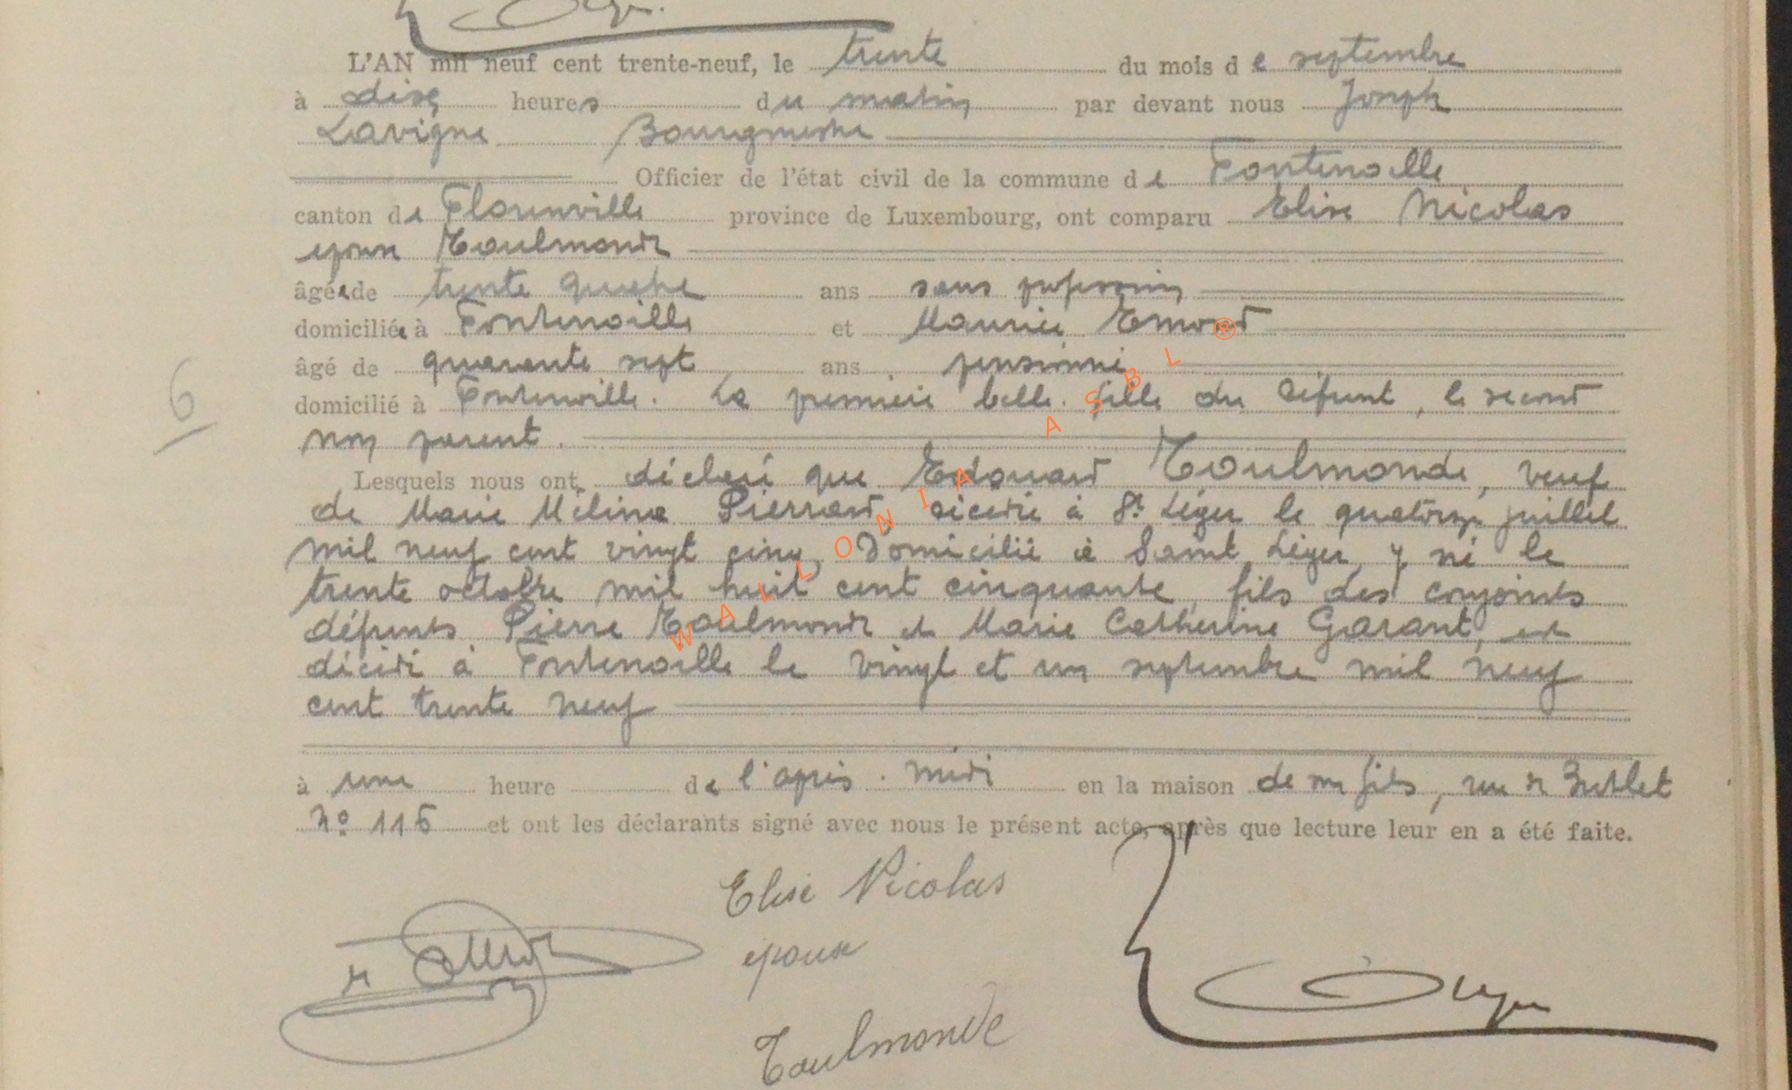 L'AN mil neuf cent trente-neuf, le trente du mois de septembre
à dix heures du matin par devant nous Joseph
Lavigne Bourgmestre
Officier de l'état civil de la commune de Fontenoille
canton de Florenville province de Luxembourg, ont comparu Elise Nicolas
épouse Toulmonde
âgée de trente quatre ans sans profession
domiciliée à Fontenoille et Maurice Emond
âgé de quarante sept ans pensionné
domicilié à Fontenoille. La première belle-fille du défunt, le second
non parent.
6
Lesquels nous ont déclaré que Edouard Toulmonde, veuf
de Marie Mélina Pierrard, décédée à St Léger le quatorze juillet
mil neuf cent vingt cinq, domicilié à Saint Léger, y né le
trente octobre mil huit cent cinquante, fils des conjoints
défunts Pierre Toulmonde et Marie Catherine Garant, est
décédé à Fontenoille le vingt et un septembre mil neuf
cent trente neuf
à une heure de l'après-midi en la maison de son fils, rue
No 116 et ont les déclarants signé avec nous le présent acte, après que lecture leur en a été faite.
Elise Nicolas
épouse
Toulmonde
WALLONIA ASBL ®